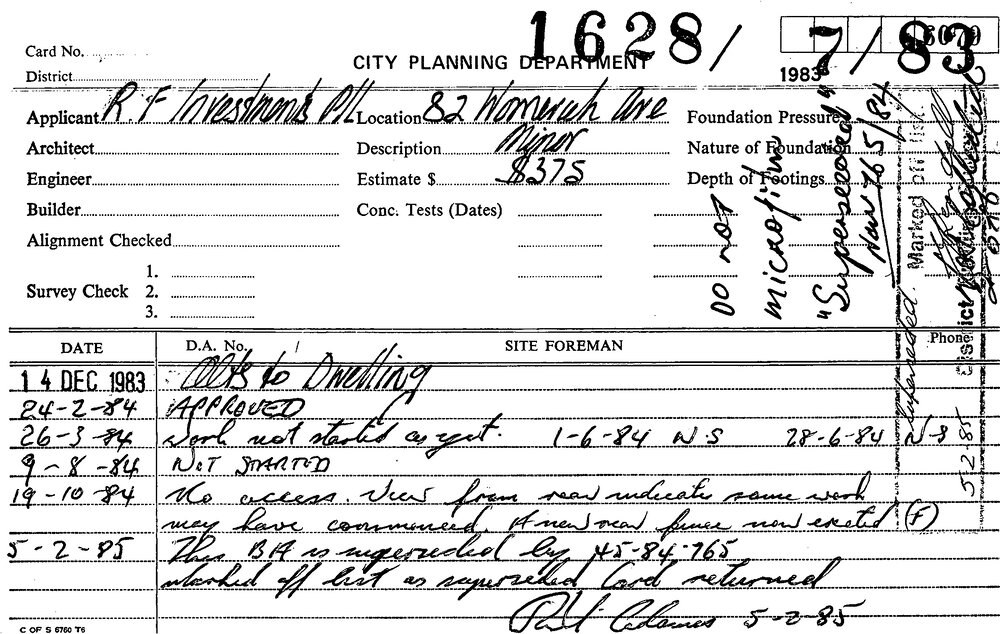 1628/7/83
Card No.
CITY PLANNING DEPARTMENT
District
1983
Applicant R.F Investments P/L Location 82 Womerah Ave Foundation Pressure
Architect Description Minor Nature of Foundation
Engineer Estimate $ $375 Depth of Footings
Builder Conc. Tests (Dates)
Alignment Checked
1.
Survey Check 2.
3.
Do not
microfilm
"Superseded"
765/84
Marked off list
Superseded.
District
5-2-85
DATE D.A. No. SITE FOREMAN Phone
14 DEC 1983 Alts to Dwelling
24-2-84 APPROVED
26-3-84 Work not started as yet. 1-6-84 NS 28-6-84 NS
9-8-84 NOT STARTED
19-10-84 No access. View from rear indicates some work
may have commenced. A new rear fence now erected (F)
5-2-85 This BA is superseded by 45-84-765
Marked off list as superseded Card returned
5-2-85
C OF S 6760 T6